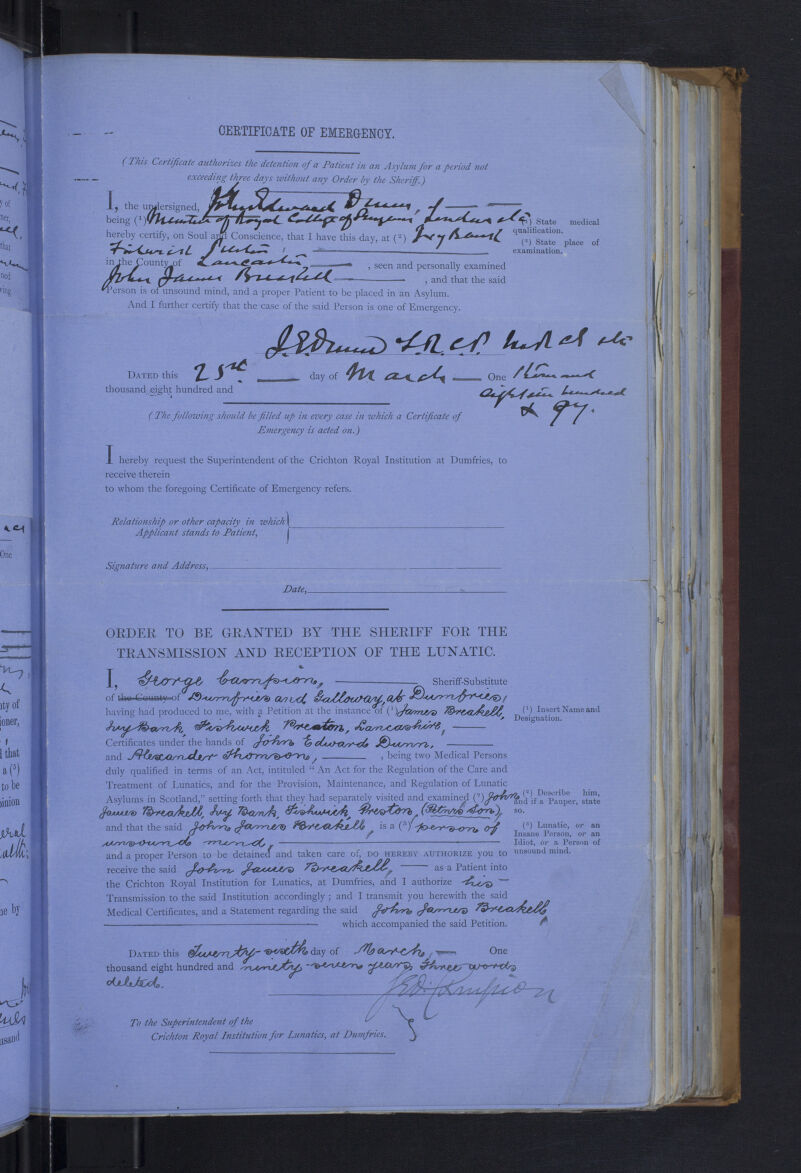 CERTIFICATE OF EMERGENCY.
(This Certificate authorizes the detention of a Patient in an Asylum for a period not
exceeding three days without any Order by the Sheriff.)
I, the undersigned, John Edward Dunn, of
being (¹) Member of Royal College of Surgeons London etc
(¹) State medical
qualification.
hereby certify, on Soul and Conscience, that I have this day, at (²) Ivy Bank
(²) State place of
examination.
Fishwick Preston
in the County of Lancaster, seen and personally examined
John James Breakell, and that the said
Person is of unsound mind, and a proper Patient to be placed in an Asylum.
And I further certify that the case of the said Person is one of Emergency.
J. E. Dunn L.R.C.P. M.R.C.S. etc
DATED this 25th day of March One thousand
thousand eight hundred and eighteen hundred
& 97.
(The following should be filled up in every case in which a Certificate of
Emergency is acted on.)
I hereby request the Superintendent of the Crichton Royal Institution at Dumfries, to
receive therein
to whom the foregoing Certificate of Emergency refers.
Relationship or other capacity in which
Applicant stands to Patient,
Signature and Address,
Date,
ORDER TO BE GRANTED BY THE SHERIFF FOR THE
TRANSMISSION AND RECEPTION OF THE LUNATIC.
I, George Campion, Sheriff-Substitute
of the County of Dumfries and Galloway, at Dumfries,
having had produced to me, with a Petition at the instance of (¹) James Breakell,
(¹) Insert Name and
Designation.
Ivy Bank, Fishwick Preston, Lancashire,
Certificates under the hands of John Edward Dunn,
and Alexander Thomson, , being two Medical Persons
duly qualified in terms of an Act, intituled "An Act for the Regulation of the Care and
Treatment of Lunatics, and for the Provision, Maintenance, and Regulation of Lunatic
Asylums in Scotland," setting forth that they had separately visited and examined (²) John
(²) Describe him,
and if a Pauper, state
so.
James Breakell, Ivy Bank, Fishwick, Preston, (Petnr's Son),
and that the said John James Breakell, is a (³) person of
(³) Lunatic, or an
Insane Person, or an
Idiot, or a Person of
unsound mind.
unsound mind,
and a proper Person to be detained and taken care of, DO HEREBY AUTHORIZE you to
receive the said John James Breakell, as a Patient into
the Crichton Royal Institution for Lunatics, at Dumfries, and I authorize his
Transmission to the said Institution accordingly; and I transmit you herewith the said
Medical Certificates, and a Statement regarding the said John James Breakell,
which accompanied the said Petition.
DATED this Twenty-sixth day of March, One
thousand eight hundred and ninety-seven years, Three words
deleted.
Campion
To the Superintendent of the
Crichton Royal Institution for Lunatics, at Dumfries.